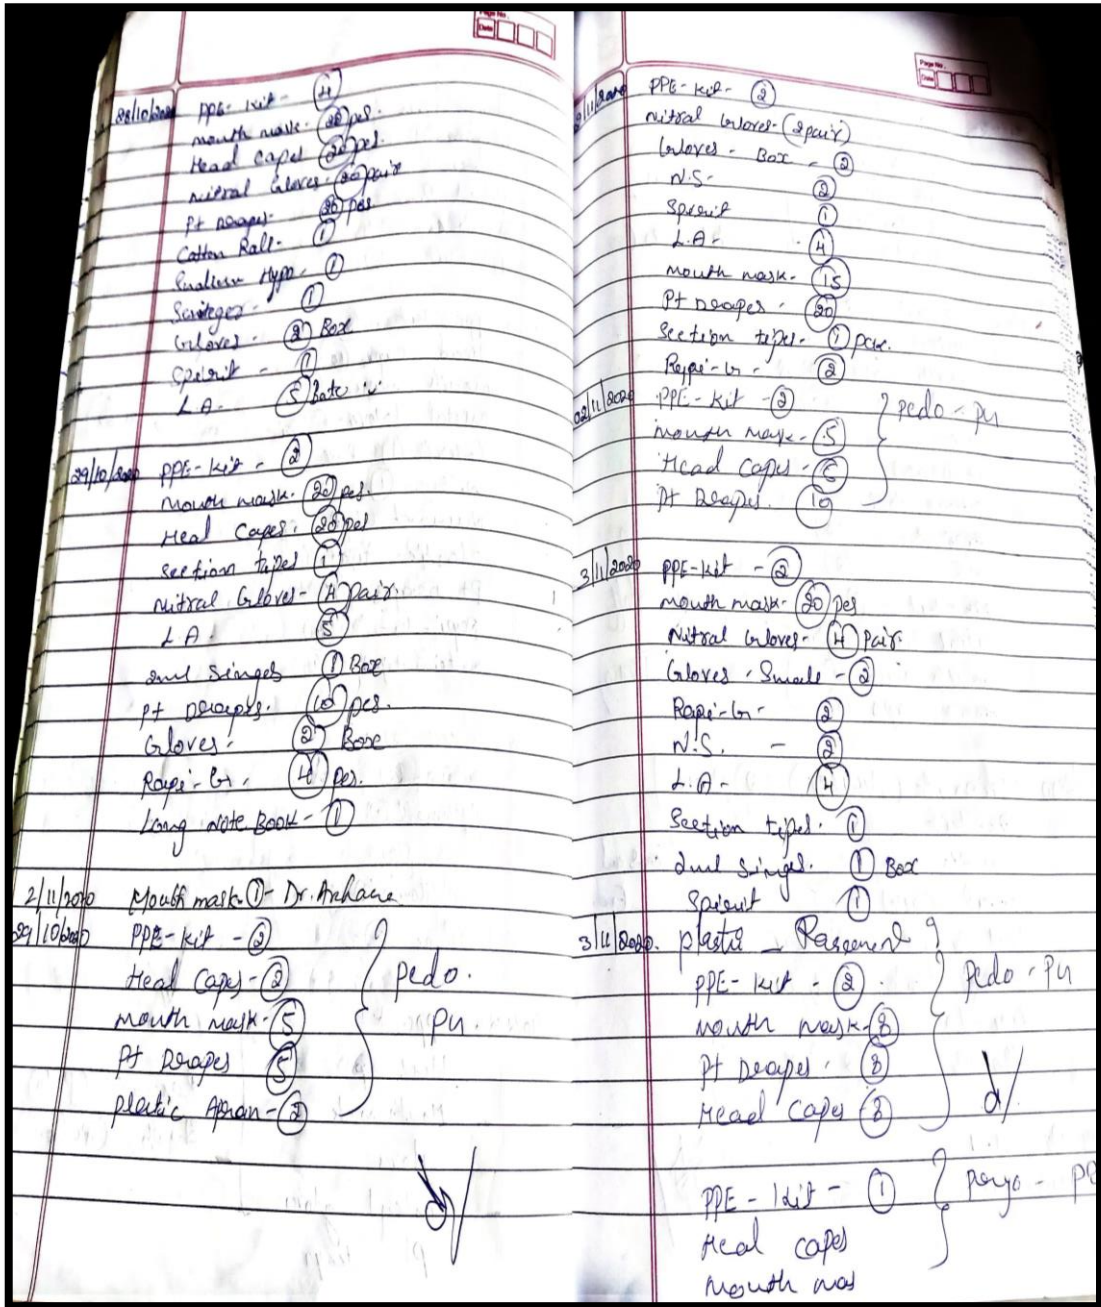 Page No.
Date
28/10/2020 PPE- Kit - 4
mouth mask - 20 pcs.
Head Capes 20 pcs.
Nitral Gloves - 20 pair
Pt Drapes - 20 pcs
Cotton Roll - 1
Hypo - 1
1
Gloves - 2 Box
Spirit - 1
L A - 5
29/10/2020 PPE- Kit - 2
Mouth mask - 20 pcs.
Heal Capes - 20 pcs
Section tipes 1
Nitral Gloves - 4 pair
L.A - 5
2ml Singes 1 Box
Pt Drapes - 10 pcs.
Gloves - 2 Box
Rapi-Gr - 4 pcs.
Long Note Book - 1
2/11/2020 Mouth mask 1 - Dr.
29/10/2020 PPE-Kit - 2
Heal Capes - 2 pedo.
Mouth mask - 5 PU
Pt Drapes 5
Plastic Apran - 2
Page No.
Date
2/11/2020 PPE- Kit - 2
Nitral Gloves - (2pair)
Gloves - Box - 2
N.S- 2
Spirit 1
L.A- 4
Mouth mask - 15
Pt Drapes - 20
Section tipes - 1
Rapi-Gr - 2
02/11/2020 PPE- Kit - 2 pedo - PU
Mouth mask - 5
Head Capes - 6
Pt Drapes - 10
3/11/2020 PPE-Kit - 2
Mouth mask - 20 pcs
Nitral Gloves - 4 Pair.
Gloves - Smale - 2
Rapi-Gr - 2
N.S. - 2
L.A - 4
Section tipes - 1
2ml Singes. 1 Box
Spirit 1
3/11/2020. plastic
PPE- Kit - 2 Pedo - PU
Mouth mask - 8
Pt Drapes - 8
Head Capes - 8
PPE - Kit - 1
Heal capes
Mouth mas